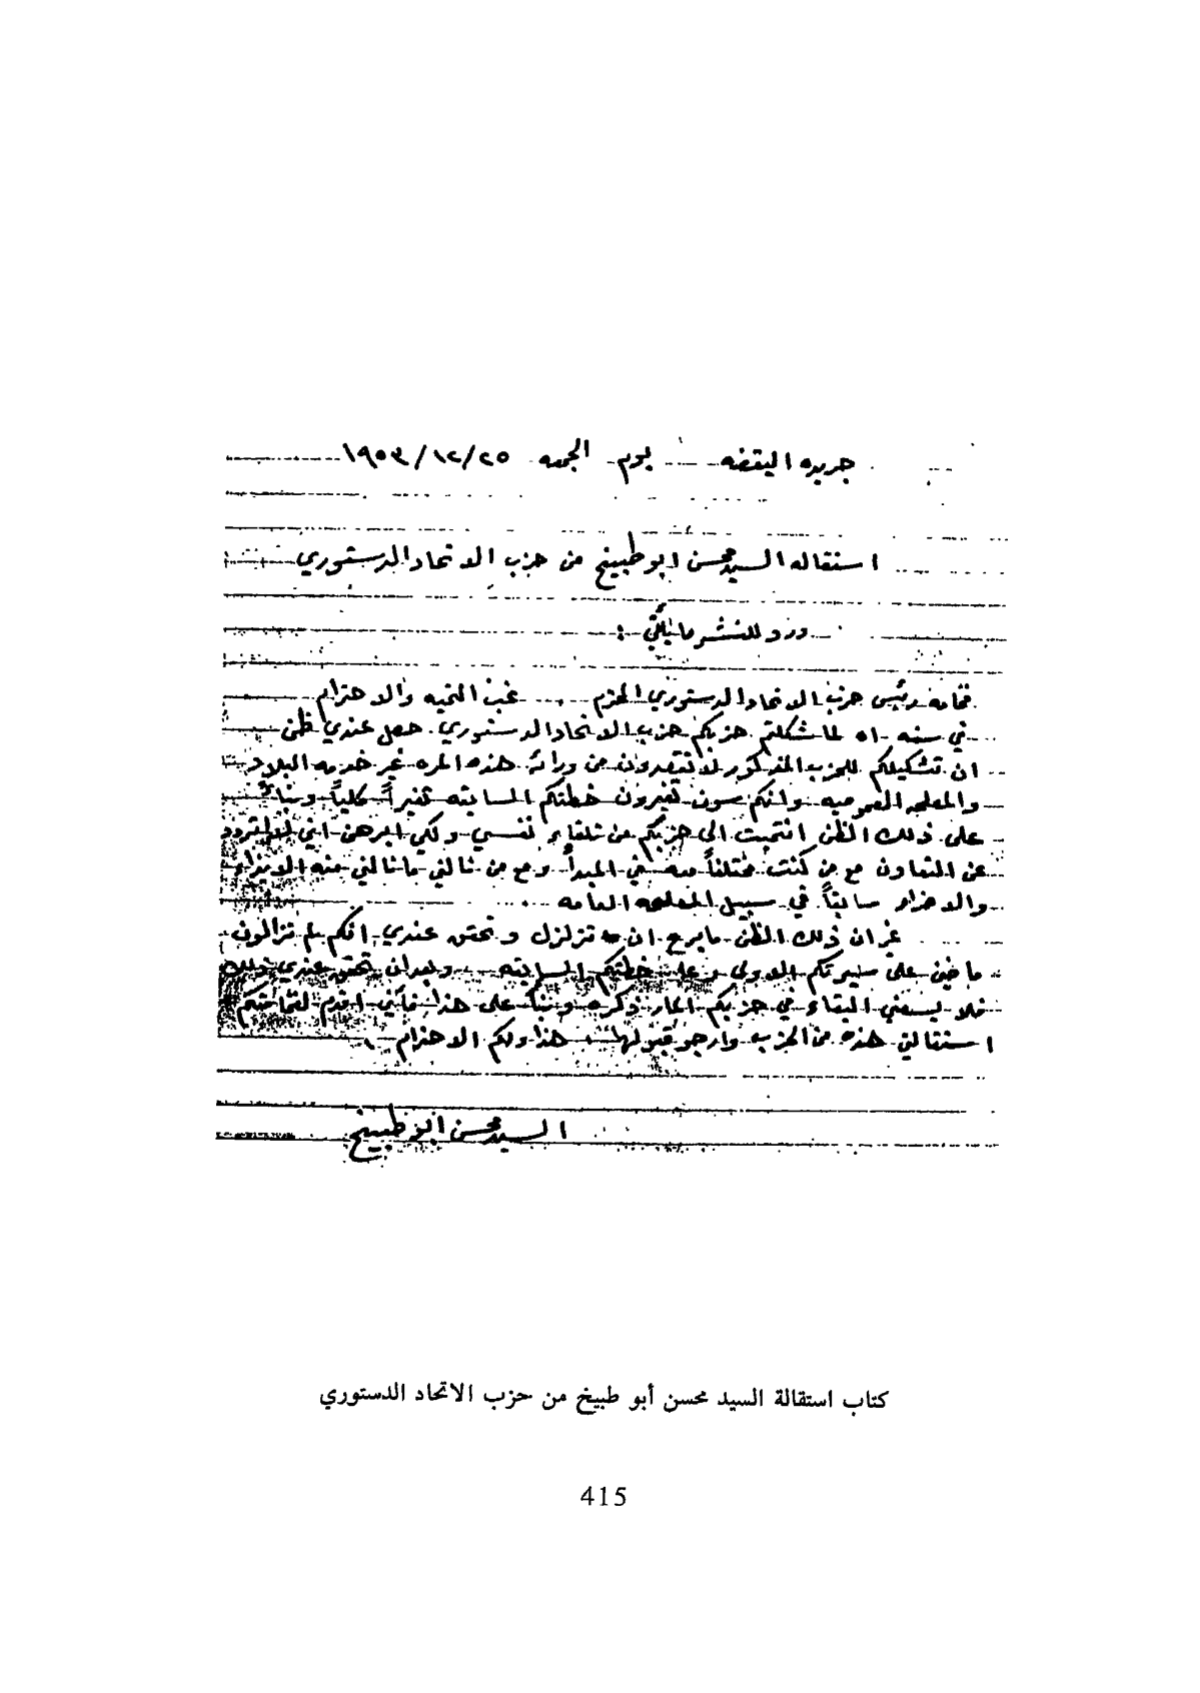 جريده اليقضه يوم الجمعه ١٩٥٣/١٢/٢٥
استقاله السيد محسن ابو طبيخ من حزب الاتحاد الدستوري
ورد للنشر ما يأتي :
فخامه رئيس حزب الاتحاد الدستوري المحترم غب التحيه والاحترام
في سنه ٥١ لما شكلتم حزبكم حزب الاتحاد الدستوري. حصل عندي ظن
ان تشكيلكم للحزب المذكور لا تقصدون من ورائه هذه المره غير خدمه البلاد
والمصلحه العموميه وانكم سوف تغيرون خطتكم السابقه تغيراً كلياً وبناءً
على ذلك الظن انتميت الى حزبكم من تلقاء نفسي ولكي ابرهن اني لا اتردد
عن التعاون مع من كنت مختلفاً معه في المبدأ ومع من نالني ما نالني منه الايذاء
والاضرار سابقاً في سبيل المصلحه العامه
غير ان ذلك الظن ما برح ان تزلزل وتحقق عندي انكم لم تزالون
ماضين على سيرتكم الاولى وعلى خطتكم السابقه وبعد ان تحقق عندي ذلك
فلا يسعني البقاء في حزبكم المار ذكره وبناءً على هذا فأنني اقدم لفخامتكم
استقالتي هذه من الحزب وارجو قبولها هذا ولكم الاحترام
السيد محسن ابو طبيخ
كتاب استقالة السيد محسن أبو طبيخ من حزب الاتحاد الدستوري
415